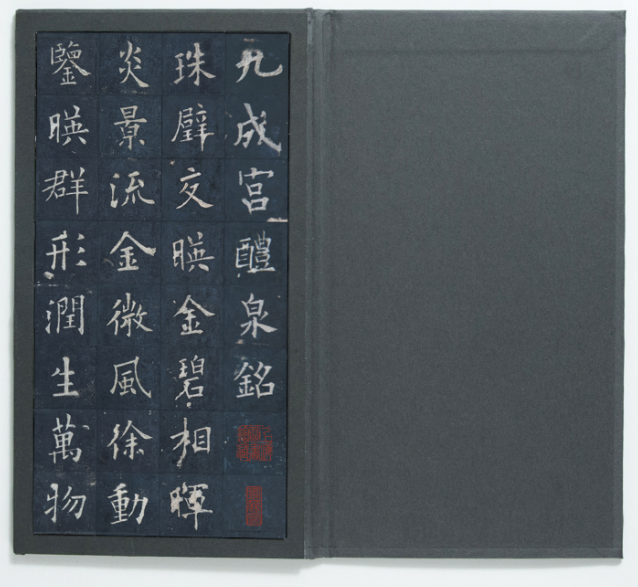 九成宮醴泉銘
珠璧交暎金碧相暉
炎景流金微風徐動
鑒暎群形潤生萬物